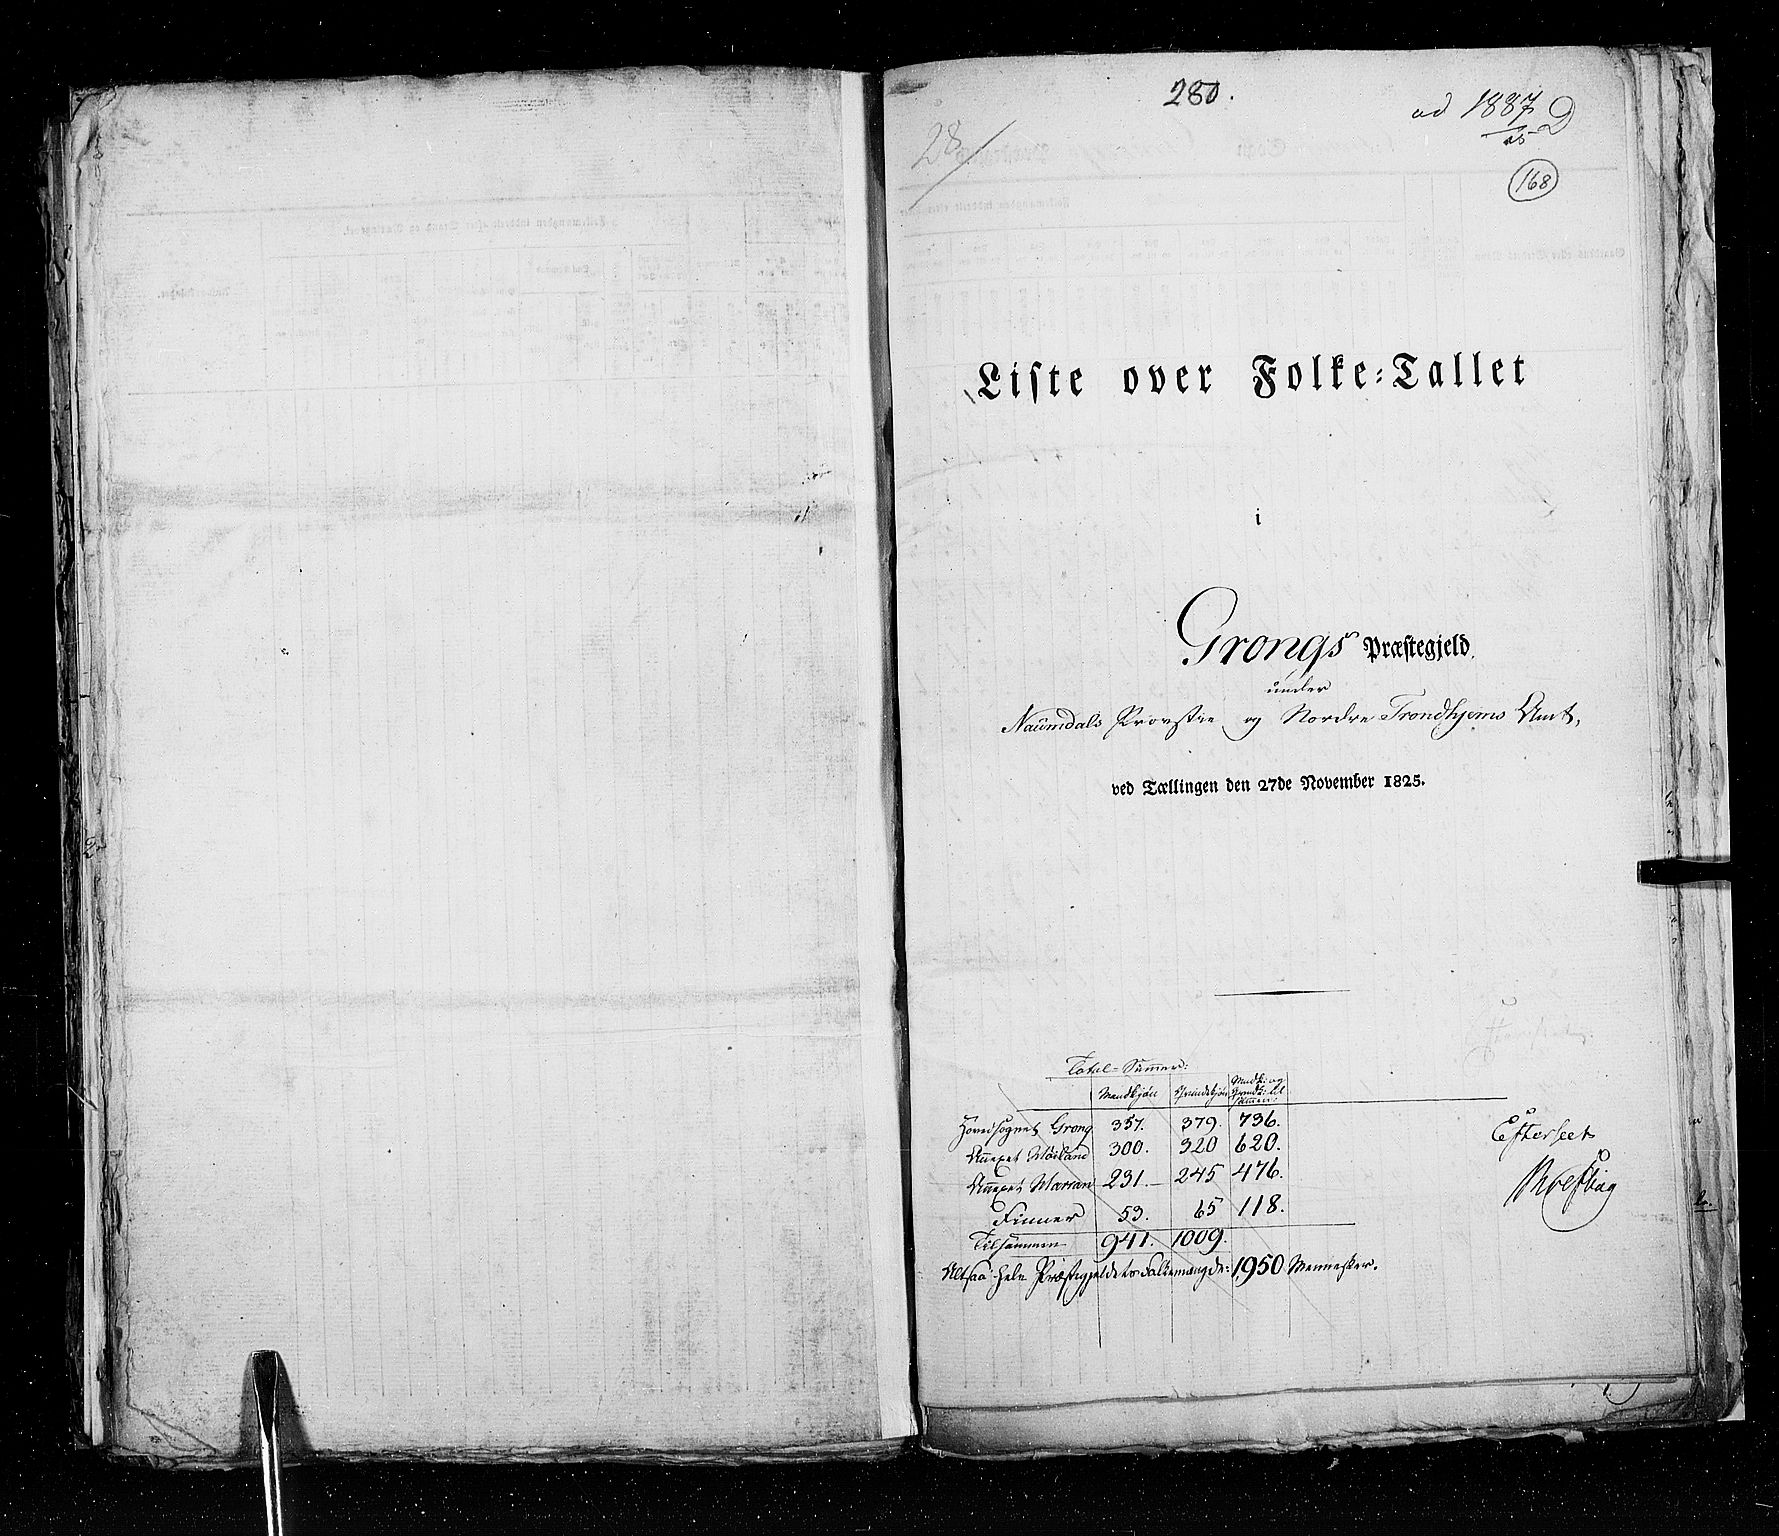 280.
ad 1887/25 D
28
168
Liste over Folke=Tallet
i
Grongs Præstegjeld,
under
Naumdals Provstie og Nordre Trondhjems Amt,
ved Tællingen den 27de November 1825.
Total-Summer:
Mandkjön Qvindekjön Mandk: og Qvindk: til sammen:
Hovedsognet Grong 357. 379. 736.
Annexet 300. 320 620.
Annexet 231.— 245 476.
Finner 53. 65 118.
Tilsammen 941. 1009.
Altsaa hele Præstegjeldets Folkemængde: 1950 Mennesker.
Efterseet